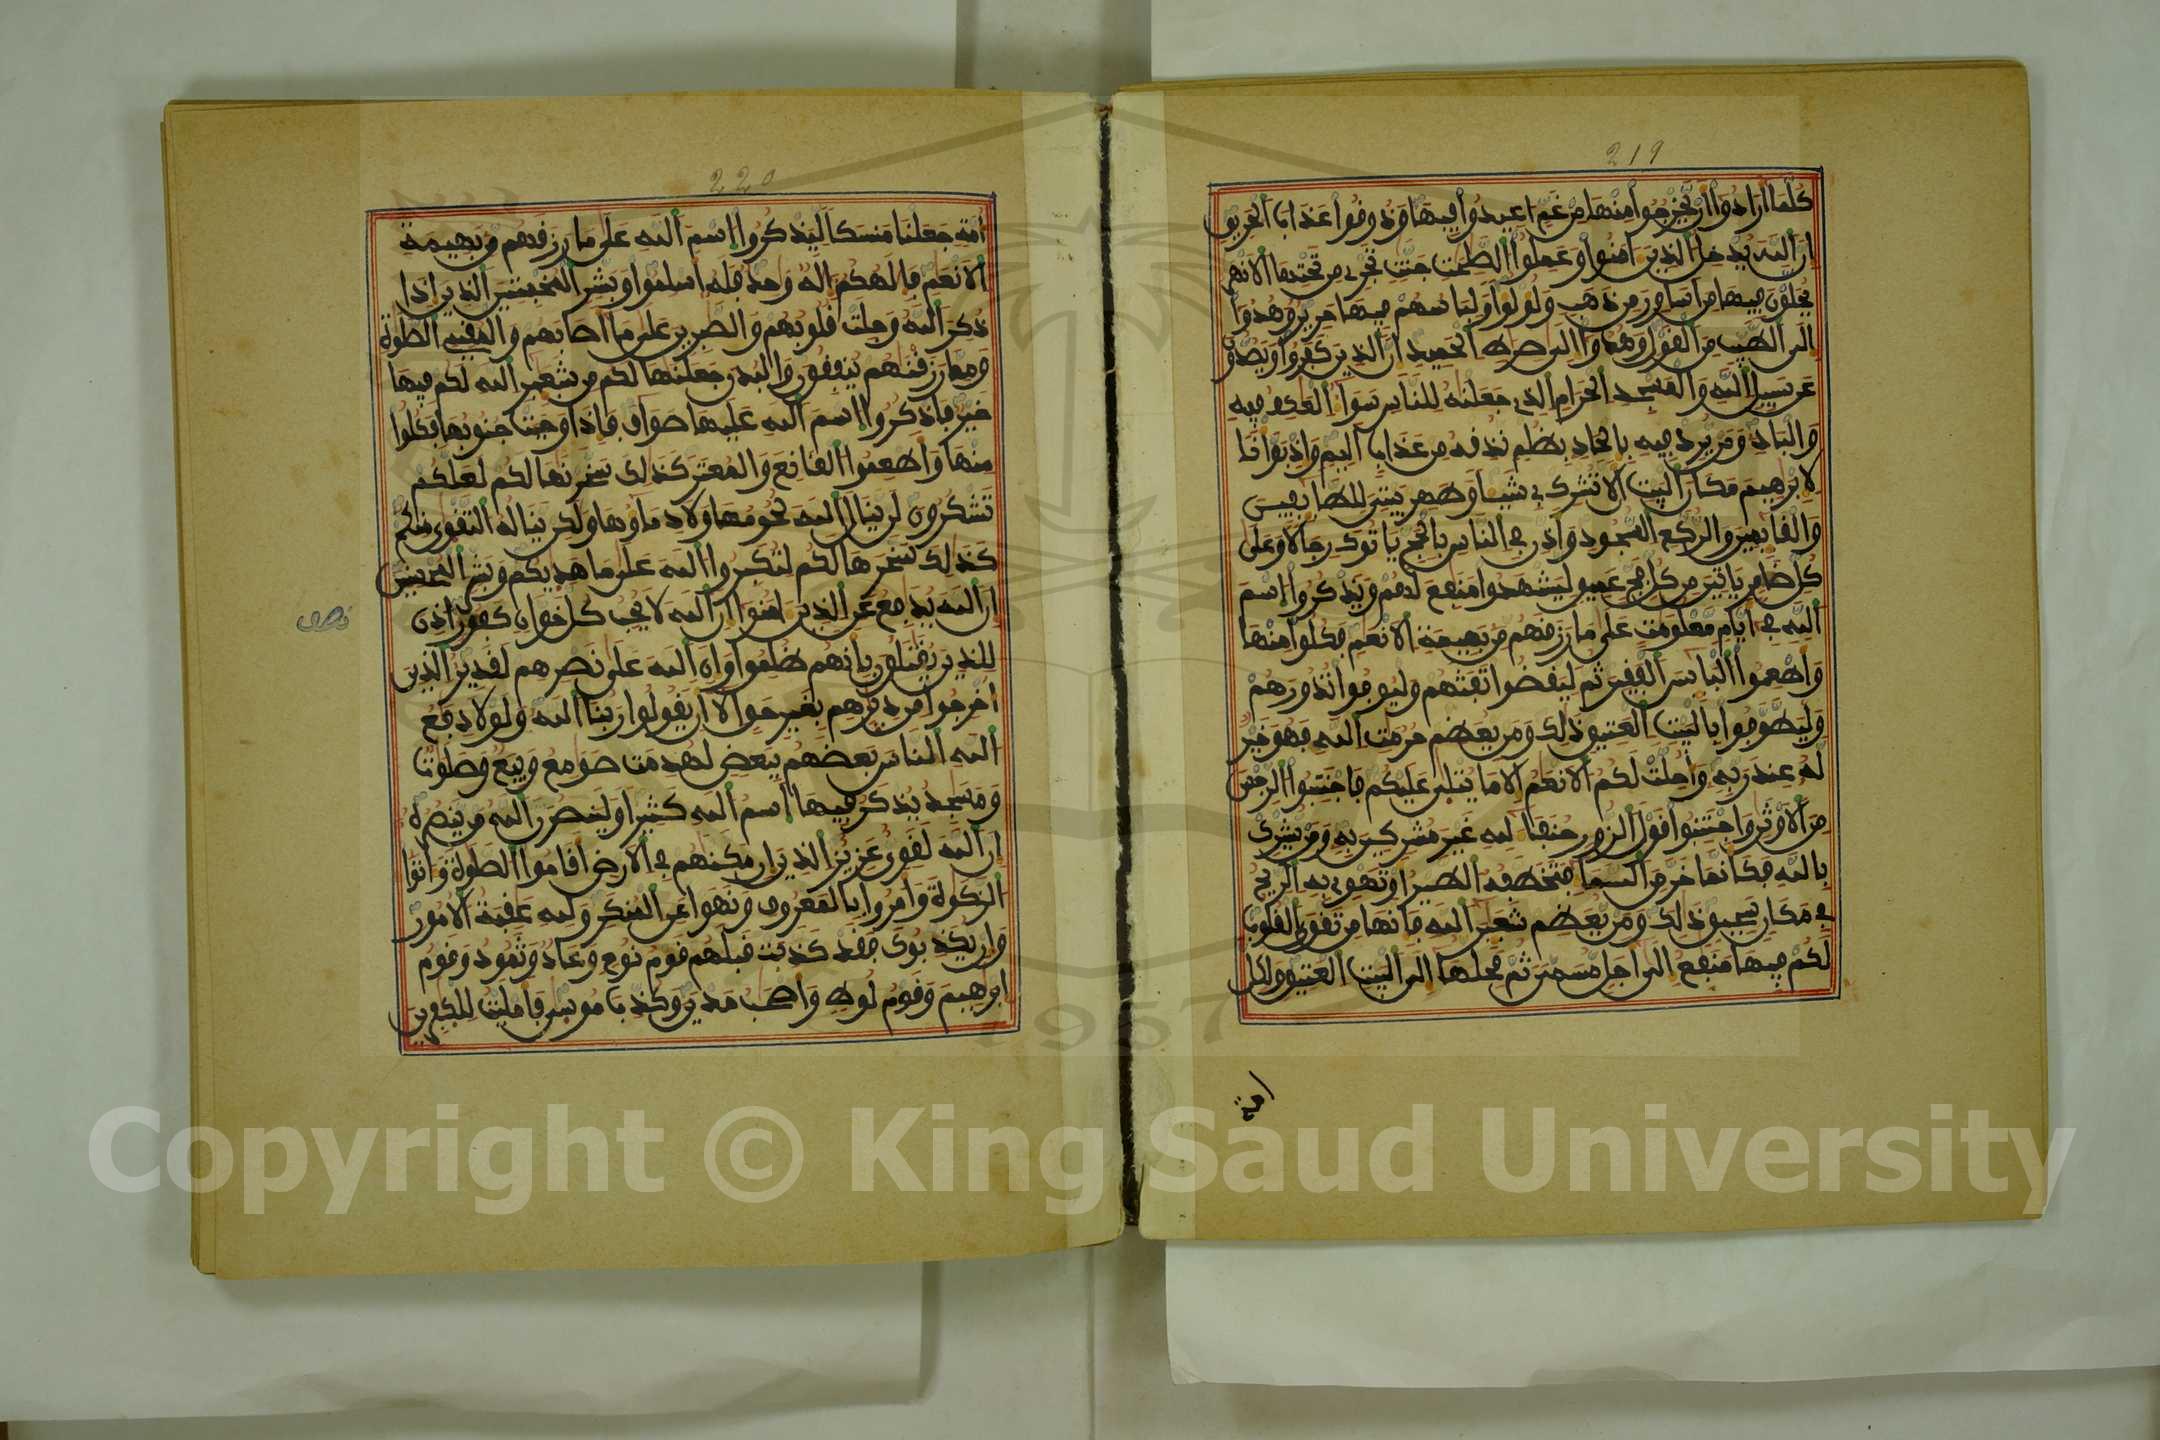 219
كلما أرادوا أن يخرجوا منها من غم اعيدوا فيها وذوقوا عذاب الحريق
ان الله يدخل الذين امنوا وعملوا الصلحت جنت تجرى من تحتها الانهر
يحلون فيها من أساور من ذهب ولؤلؤا ولباسهم فيها حرير وهدوا
الى الطيب من القول وهدوا الى صرط الحميد ان الذين كفروا ويصدون
عن سبيل الله والمسجد الحرام الذى جعلنه للناس سواء العكف فيه
والباد ومن يرد فيه بالحاد بظلم نذقه من عذاب اليم واذ بوانا
لابرهيم مكان البيت ألا تشرك بى شيئا وطهر بيتى للطايفين
والقايمين والركع السجود واذن فى الناس بالحج ياتوك رجالا وعلى
كل ضامر ياتين من كل فج عميق ليشهدوا منفع لهم ويذكروا اسم
الله فى ايام معلومت على ما رزقهم من بهيمة الانعم فكلوا منها
واطعموا البائس الفقير ثم ليقضوا تفثهم وليوفوا نذورهم
وليطوفوا بالبيت العتيق ذلك ومن يعظم حرمت الله فهو خير
له عند ربه وأحلت لكم الانعم الا ما يتلى عليكم فاجتنبوا الرجس
من الاوثن واجتنبوا قول الزور حنفاء لله غير مشركين به ومن يشرك
بالله فكأنما خر من السماء فتخطفه الطير او تهوى به الريح
فى مكان سحيق ذلك ومن يعظم شعير الله فانها من تقوى القلوب
لكم فيها منفع الى اجل مسمى ثم محلها الى البيت العتيق ولكل
امة
220
امة جعلنا منسكا ليذكروا اسم الله على ما رزقهم من بهيمة
الانعم فالهكم اله وحد فله اسلموا وبشر المخبتين الذين اذا
ذكر الله وجلت قلوبهم والصبرين على ما اصابهم والمقيمى الصلوة
ومما رزقنهم ينفقون والبدن جعلنها لكم من شعير الله لكم فيها
خير فاذكروا اسم الله عليها صواف فاذا وجبت جنوبها فكلوا
منها واطعموا القانع والمعتر كذلك سخرنها لكم لعلكم
تشكرون لن ينال الله لحومها ولا دماوها ولكن يناله التقوى منكم
كذلك سخرها لكم لتكبروا الله على ما هديكم وبشر المحسنين
ان الله يدفع عن الذين امنوا ان الله لا يحب كل خوان كفور أذن
للذين يقتلون بانهم ظلموا وان الله على نصرهم لقدير الذين
اخرجوا من ديرهم بغير حق الا ان يقولوا ربنا الله ولولا دفع
الله الناس بعضهم ببعض لهدمت صومع وبيع وصلوت
ومسجد يذكر فيها اسم الله كثيرا ولينصرن الله من ينصره
ان الله لقوى عزيز الذين ان مكنهم فى الارض اقاموا الصلوة واتوا
الزكوة وامروا بالمعروف ونهوا عن المنكر ولله عقبة الامور
وان يكذبوك فقد كذبت قبلهم قوم نوح وعاد وثمود وقوم
ابرهيم وقوم لوط واصحب مدين وكذب موسى فامليت للكفرين
نصف
1957
Copyright © King Saud University